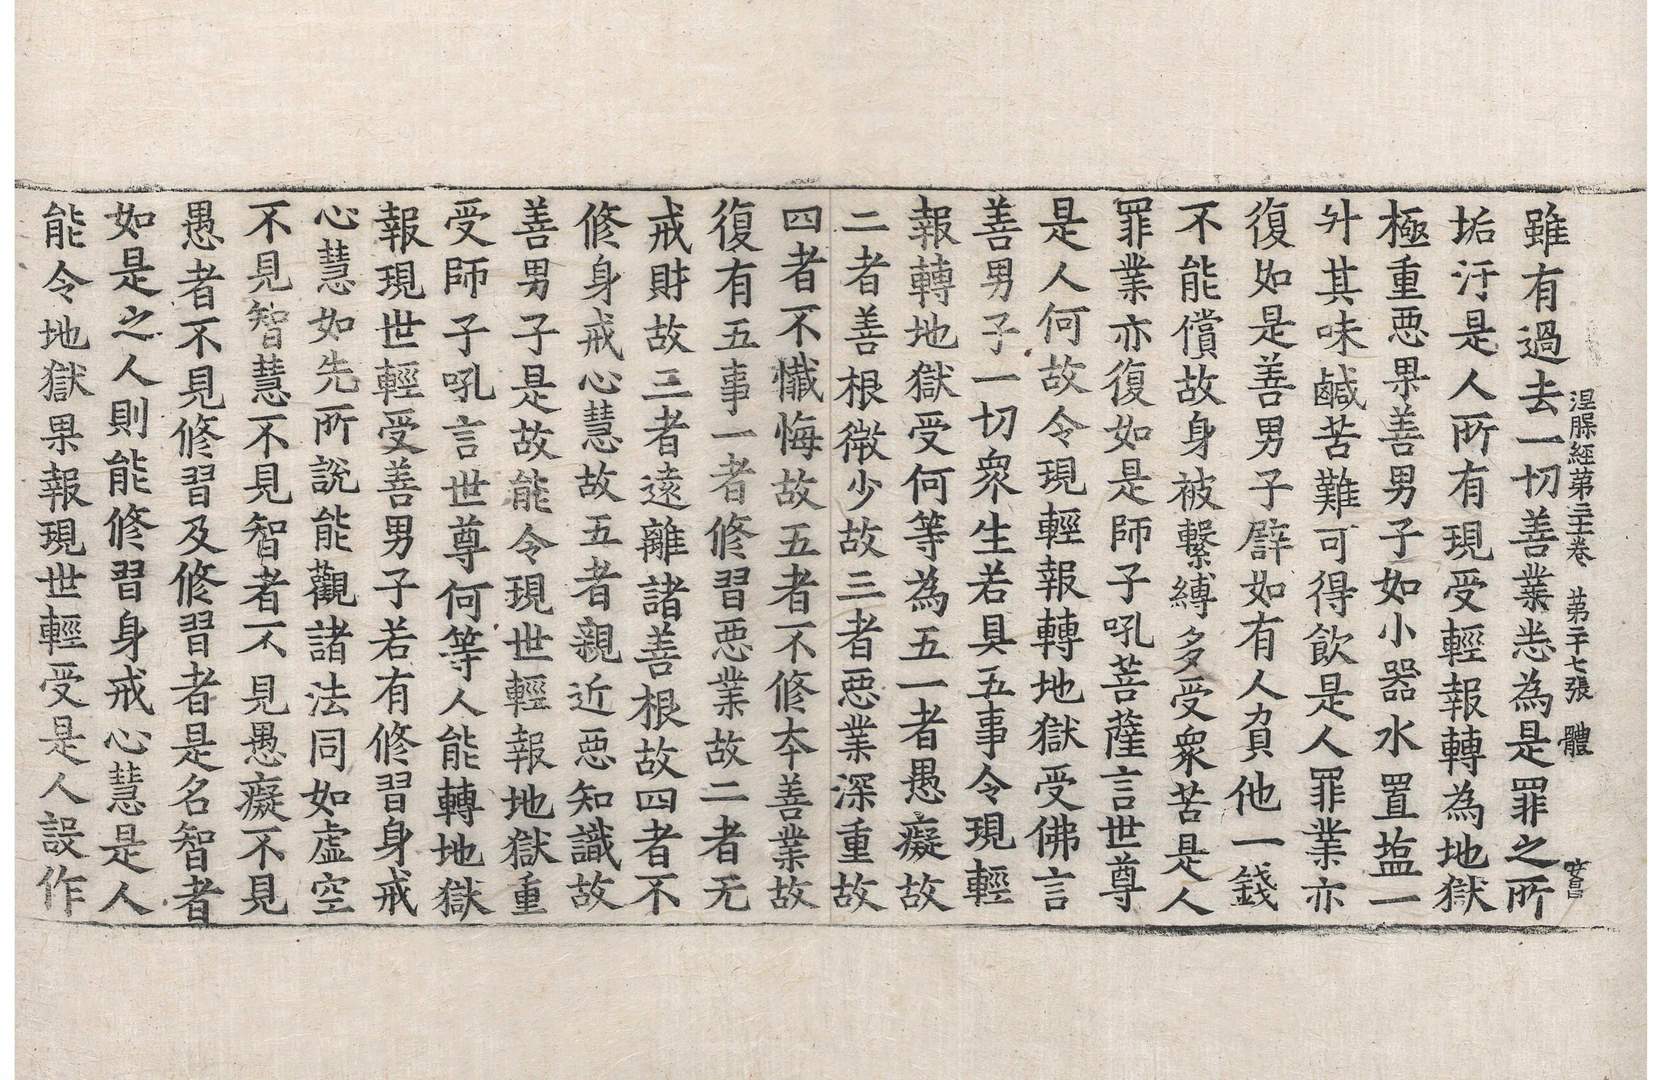 涅槃經第三十一卷 第二十七張 體
雖有過去一切善業悉為是罪之所
垢汙是人所有現受輕報轉為地獄
極重惡果善男子如小器水置塩一
升其味鹹苦難可得飲是人罪業亦
復如是善男子譬如有人負他一錢
不能償故身被繫縛多受衆苦是人
罪業亦復如是師子吼菩薩言世尊
是人何故令現輕報轉地獄受佛言
善男子一切衆生若具五事令現輕
報轉地獄受何等為五一者愚癡故
二者善根微少故三者惡業深重故
四者不懺悔故五者不修夲善業故
復有五事一者修習惡業故二者无
戒財故三者遠離諸善根故四者不
修身戒心慧故五者親近惡知識故
善男子是故能令現世輕報地獄重
受師子吼言世尊何等人能轉地獄
報現世輕受善男子若有修習身戒
心慧如先所說能觀諸法同如虛空
不見智慧不見智者不見愚癡不見
愚者不見修習及修習者是名智者
如是之人則能修習身戒心慧是人
能令地獄果報現世輕受是人設作